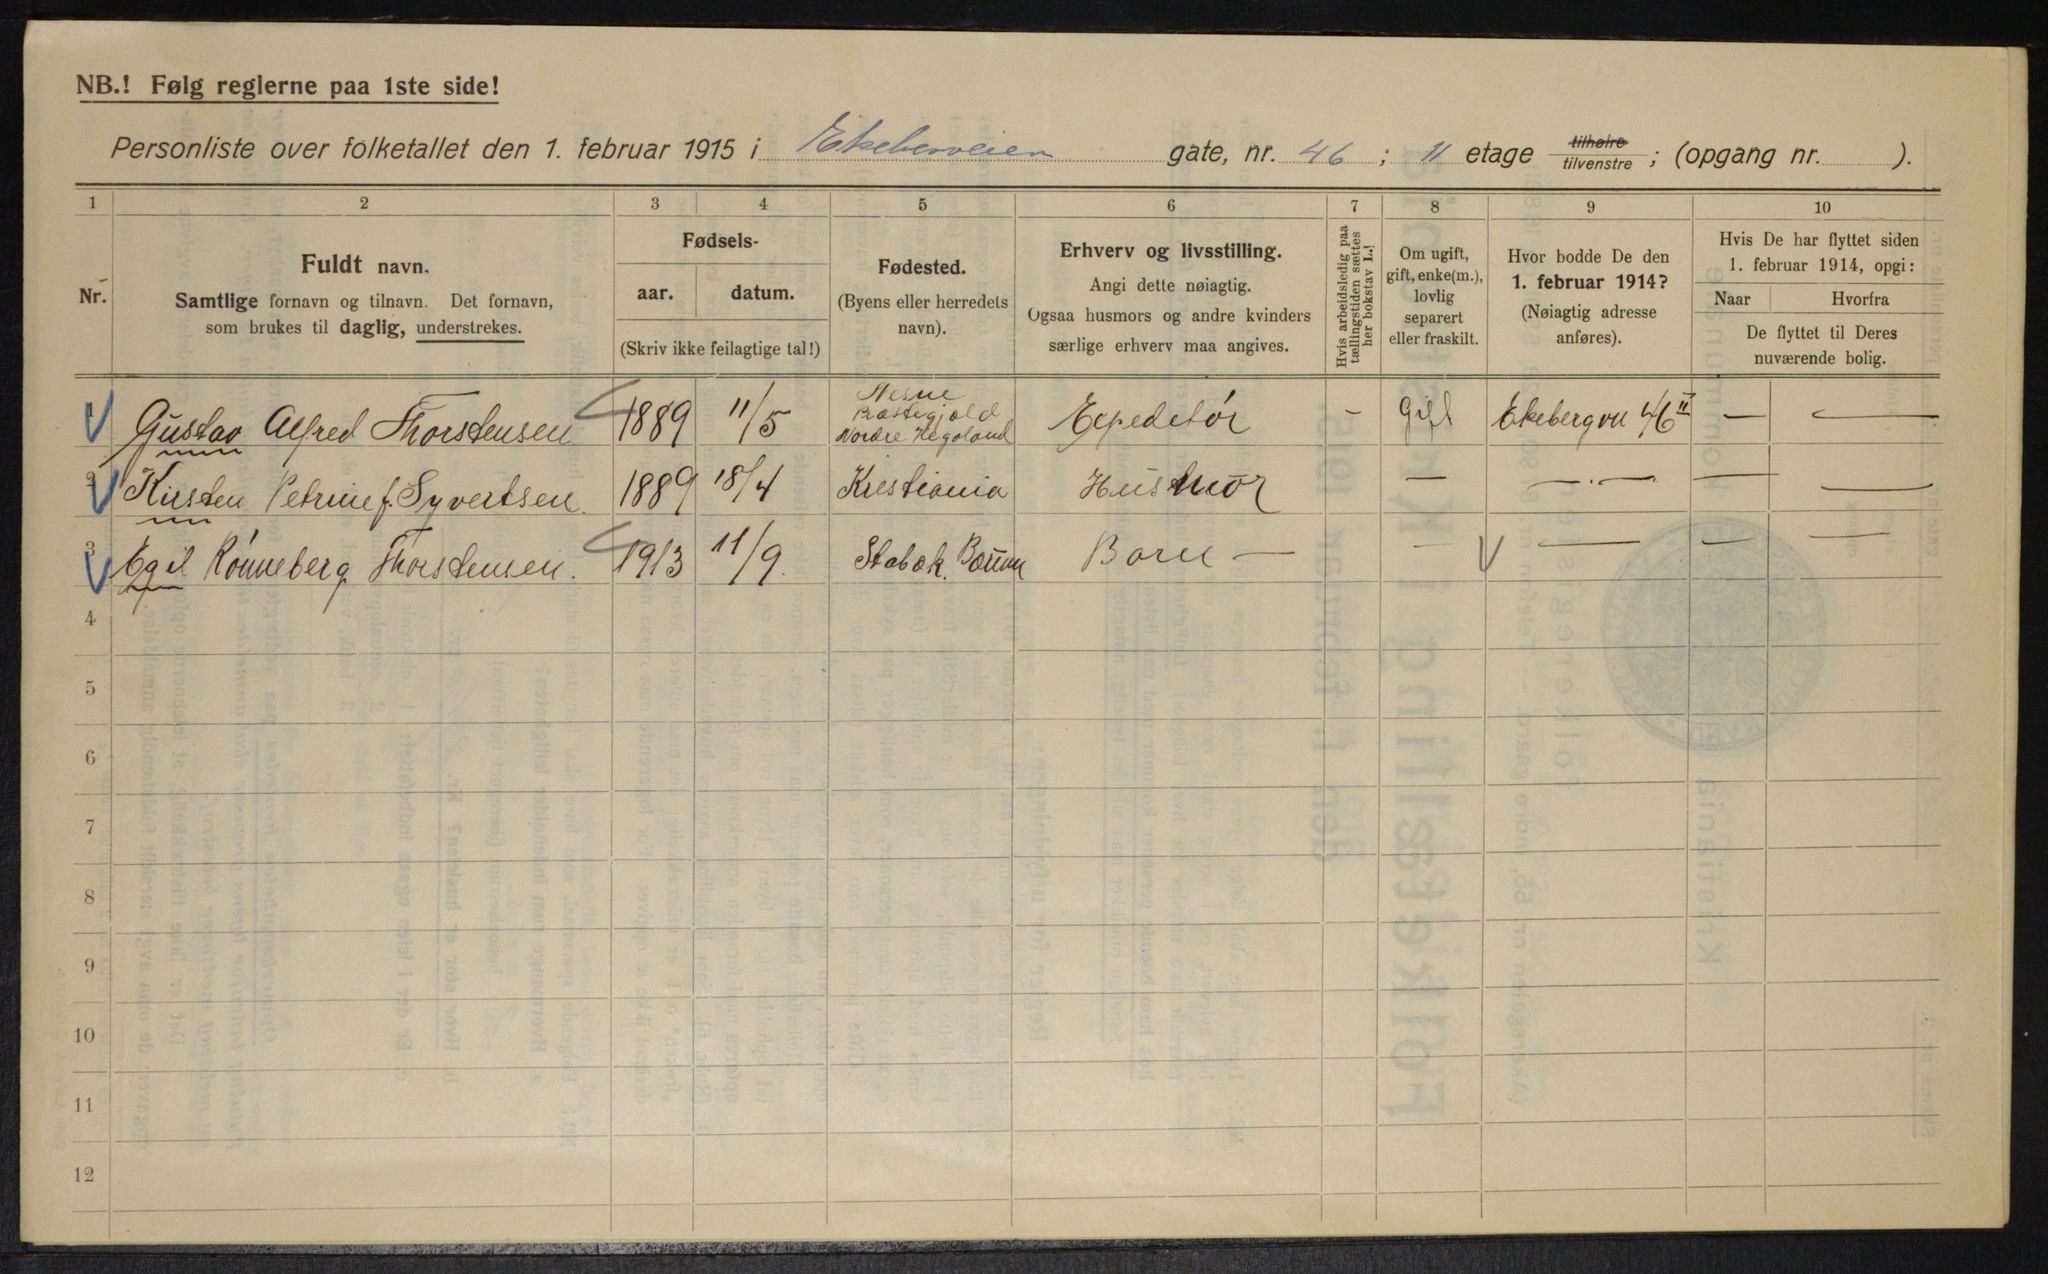 NB.! Følg reglerne paa 1ste side!
Personliste over folketallet den 1. februar 1915 i Ekeberveien gate, nr. 46 ; 11 etage tilhøire tilvenstre ; (opgang nr. ).
1 2 3 4 5 6 7 8 9 10
Nr.
Fuldt navn.
Samtlige fornavn og tilnavn. Det fornavn,
som brukes til daglig, understrekes.
Fødsels-
aar. datum.
(Skriv ikke feilagtige tal!)
Fødested.
(Byens eller herredets
navn).
Erhverv og livsstilling.
Angi dette nøiagtig.
Ogsaa husmors og andre kvinders
særlige erhverv maa angives.
Hvis arbeidsledig paa
tællingstiden sættes
her bokstav L.!
Om ugift,
gift, enke(m.),
lovlig
separert
eller fraskilt.
Hvor bodde De den
1. februar 1914?
(Nøiagtig adresse
anføres).
Hvis De har flyttet siden
1. februar 1914, opgi:
Naar Hvorfra
De flyttet til Deres
nuværende bolig.
1 Gustav Alfred Thorstensen 1889 11/5 Nesne Præstegjæld Nordre Hegoland Expeditør - Gift Ekebergvn 46 II — —
2 Kirsten Petrine f. Syvertsen. 1889 18/4 Kristiania Husmor — —.— — —
3 Egil Rønneberg Thorstensen. 1913 11/9. Stabæk. Bærum Barn — — — — —
4
5
6
7
8
9
10
11
12